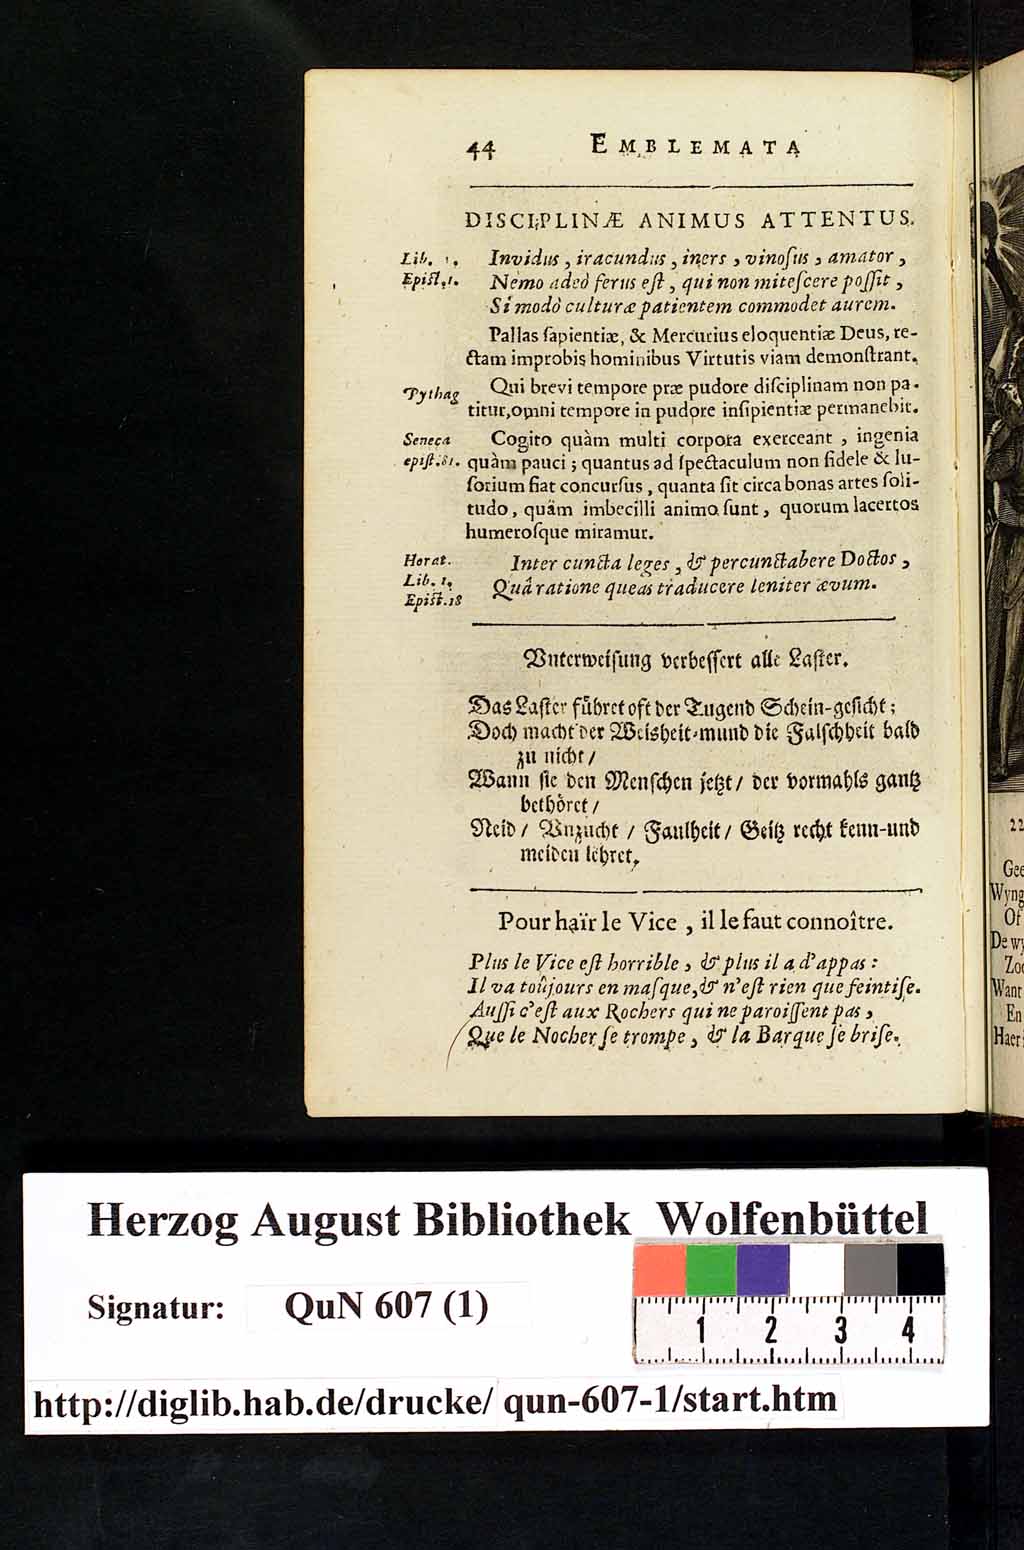 44 EMBLEMATA
DISCIPLINÆ ANIMUS ATTENTUS.
Lib. 1. Invidus, iracundus, iners, vinoſus, amator,
Epiſt. 1. Nemo adeò ferus eſt, qui non miteſcere poſſit,
Si modò culturæ patientem commodet aurem.
Pallas ſapientiæ, & Mercurius eloquentiæ Deus, re-
ctam improbis hominibus Virtutis viam demonſtrant.
Pythag Qui brevi tempore præ pudore diſciplinam non pa-
titur, omni tempore in pudore inſipientiæ permanebit.
Seneca Cogito quàm multi corpora exerceant, ingenia
epiſt. 81. quàm pauci; quantus ad ſpectaculum non fidele & lu-
ſorium fiat concurſus, quanta ſit circa bonas artes ſoli-
tudo, quàm imbecilli animo ſunt, quorum lacertos
humeroſque miramur.
Horat. Inter cuncta leges, & percunctabere Doctos,
Lib. 1. Quâ ratione queas traducere leniter ævum.
Epiſt. 18
Vnterweiſung verbeſſert alle Laſter.
Das Laſter führet oft der Tugend Schein-geſicht;
Doch macht der Weisheit-mund die Falſchheit bald
zu nicht/
Wann ſie den Menſchen jetzt/ der vormahls gantz
bethöret/
Neid/ Vnzucht/ Faulheit/ Geitz recht kenn-und
meiden lehret.
Pour haïr le Vice, il le faut connoître.
Plus le Vice eſt horrible, & plus il a d'appas:
Il va toûjours en maſque, & n'eſt rien que feintiſe.
Auſſi c'eſt aux Rochers qui ne paroiſſent pas,
Que le Nocher ſe trompe, & la Barque ſe briſe.
22
Gee
Wyng
Of
De wy
Zoo
Want
En
Haer
Herzog August Bibliothek Wolfenbüttel
Signatur: QuN 607 (1)
1 2 3 4
http://diglib.hab.de/drucke/ qun-607-1/start.htm